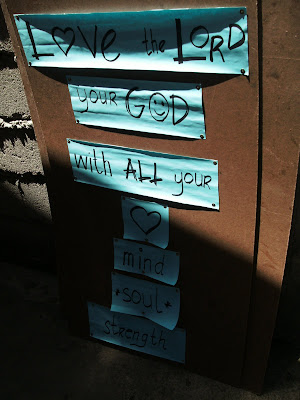 Love the LORD
your GOD
with ALL your
mind
soul
strength